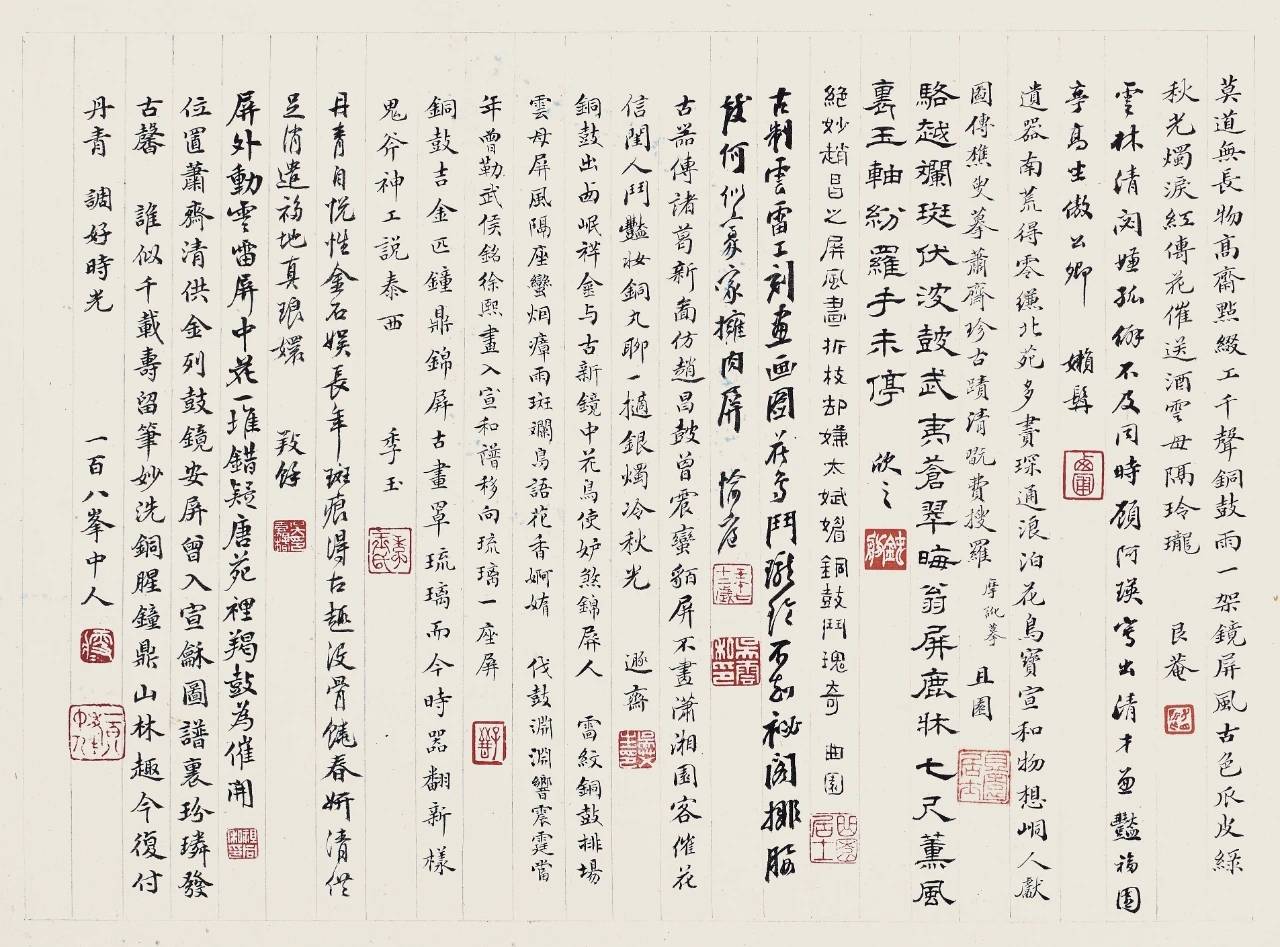 莫道無長物高齋點綴工千聲銅鼓雨一架鏡屏風古色瓜皮綠
秋光燭淚紅傳花催送酒雲母隔玲瓏 艮菴
雲林清閟孤僻不及同時顧阿瑛寫出清才兼豔福園
亭高坐傲公卿 嬾髯
遺器南荒得零縑北苑多賮琛通浪泊花鳥寶宣和物想峒人獻
圖傳樵叟摹蕭齋珍古蹟清翫費搜羅 摩訛摹 且園
駱越斕斑伏波鼓武夷蒼翠晦翁屏鹿牀七尺薰風
裏玉軸紛羅手未停 欣之
絕妙趙昌之屏風畫折枝却嫌太斌媚銅鼓鬥瑰奇 曲園
古制雲雷工刻畫画圖花鳥鬥瓏玲不知祕閣排胸
後何似豪家擁肉屏 愉庭
古器傳諸葛新圖仿趙昌鼓曾震蠻貊屏不畫瀟湘園客催花
信閨人鬥豔妝銅丸聊一擿銀燭冷秋光 遯齋
銅鼓出西岷祥金与古新鏡中花鳥使妒煞錦屏人 雷紋銅鼓排場
雲母屏風隔座蠻烟瘴雨斑斕鳥語花香婀娜 伐鼓淵淵響震霆當
年曾勒武侯銘徐熙畫入宣和譜移向琉璃一座屏
銅鼓吉金匹鐘鼎錦屏古畫罩琉璃而今時器翻新樣
鬼斧神工説泰西 季玉
丹青自悦性金石娱長年斑瘢得古趣没骨饒春妍清供
足消遣福地真琅嬛 羖餘
屏外動雲雷屏中花一堆錯疑唐苑裡羯鼓為催開
位置蕭齋清供金列鼓鏡安屏曾入宣龢圖譜裏玢璘發
古馨 誰似千載壽留筆妙洗銅腥鐘鼎山林趣今復付
丹青 調好時光 一百八峯中人